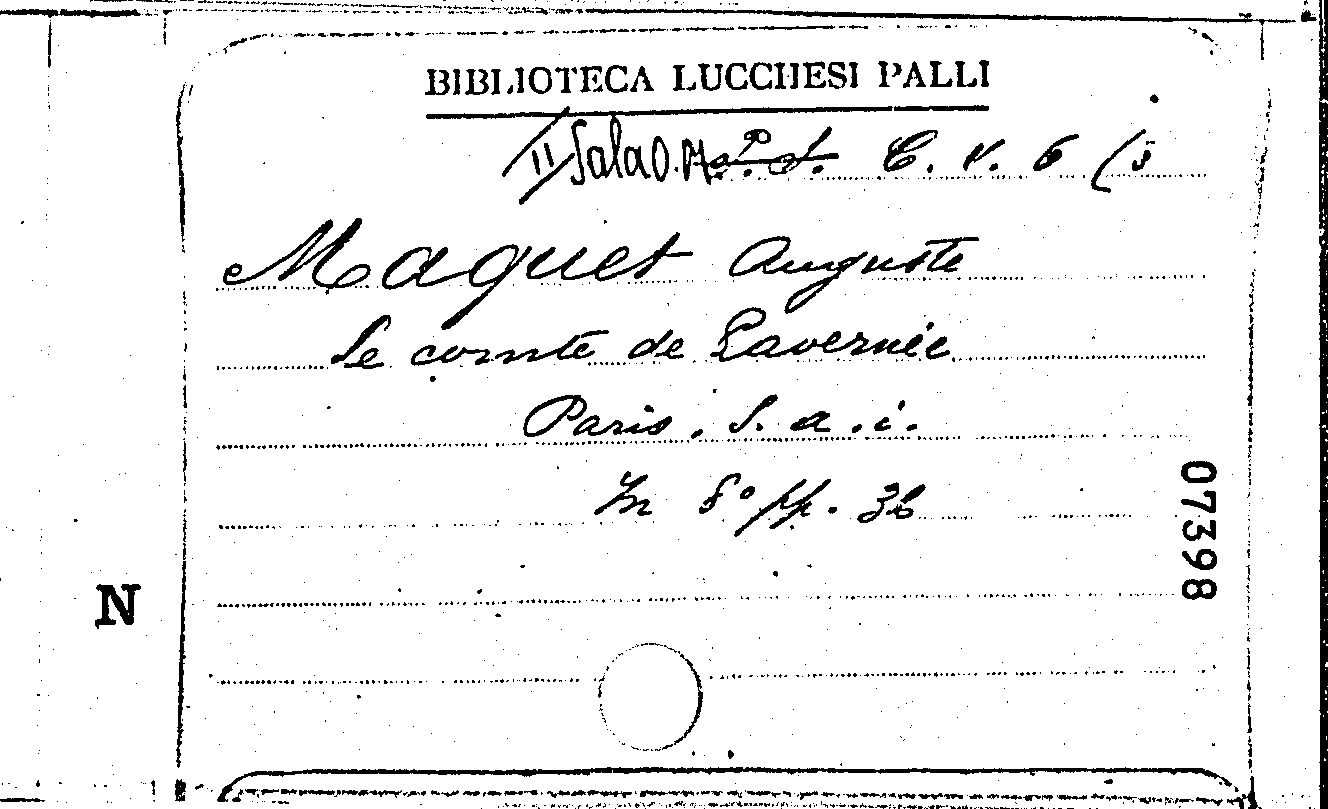 BIBLIOTECA LUCCHESI PALLI
II Sala C. V. 6 (3
Maquet Auguste
Le comte de Lavernie
Paris. S. a. i.
In 8° pp.
07398
N